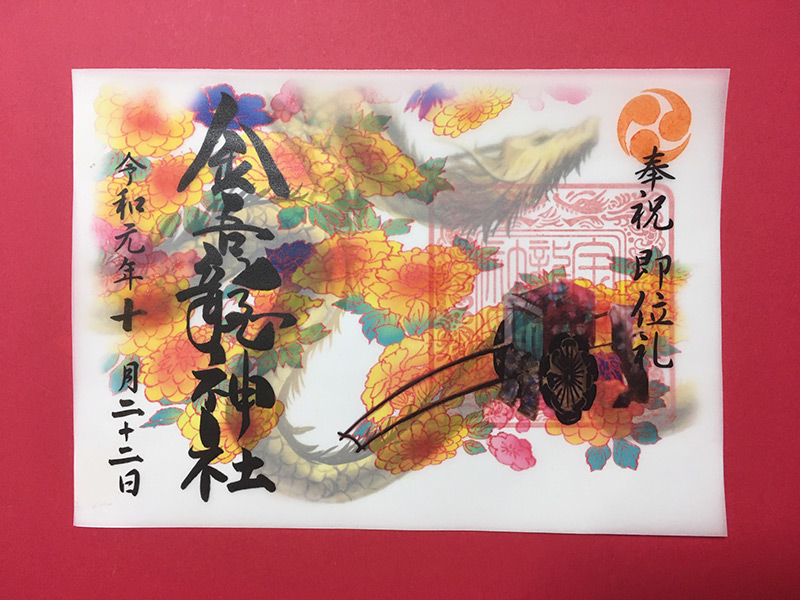 奉祝 即位礼
金吾龍神社
令和元年十月二十二日